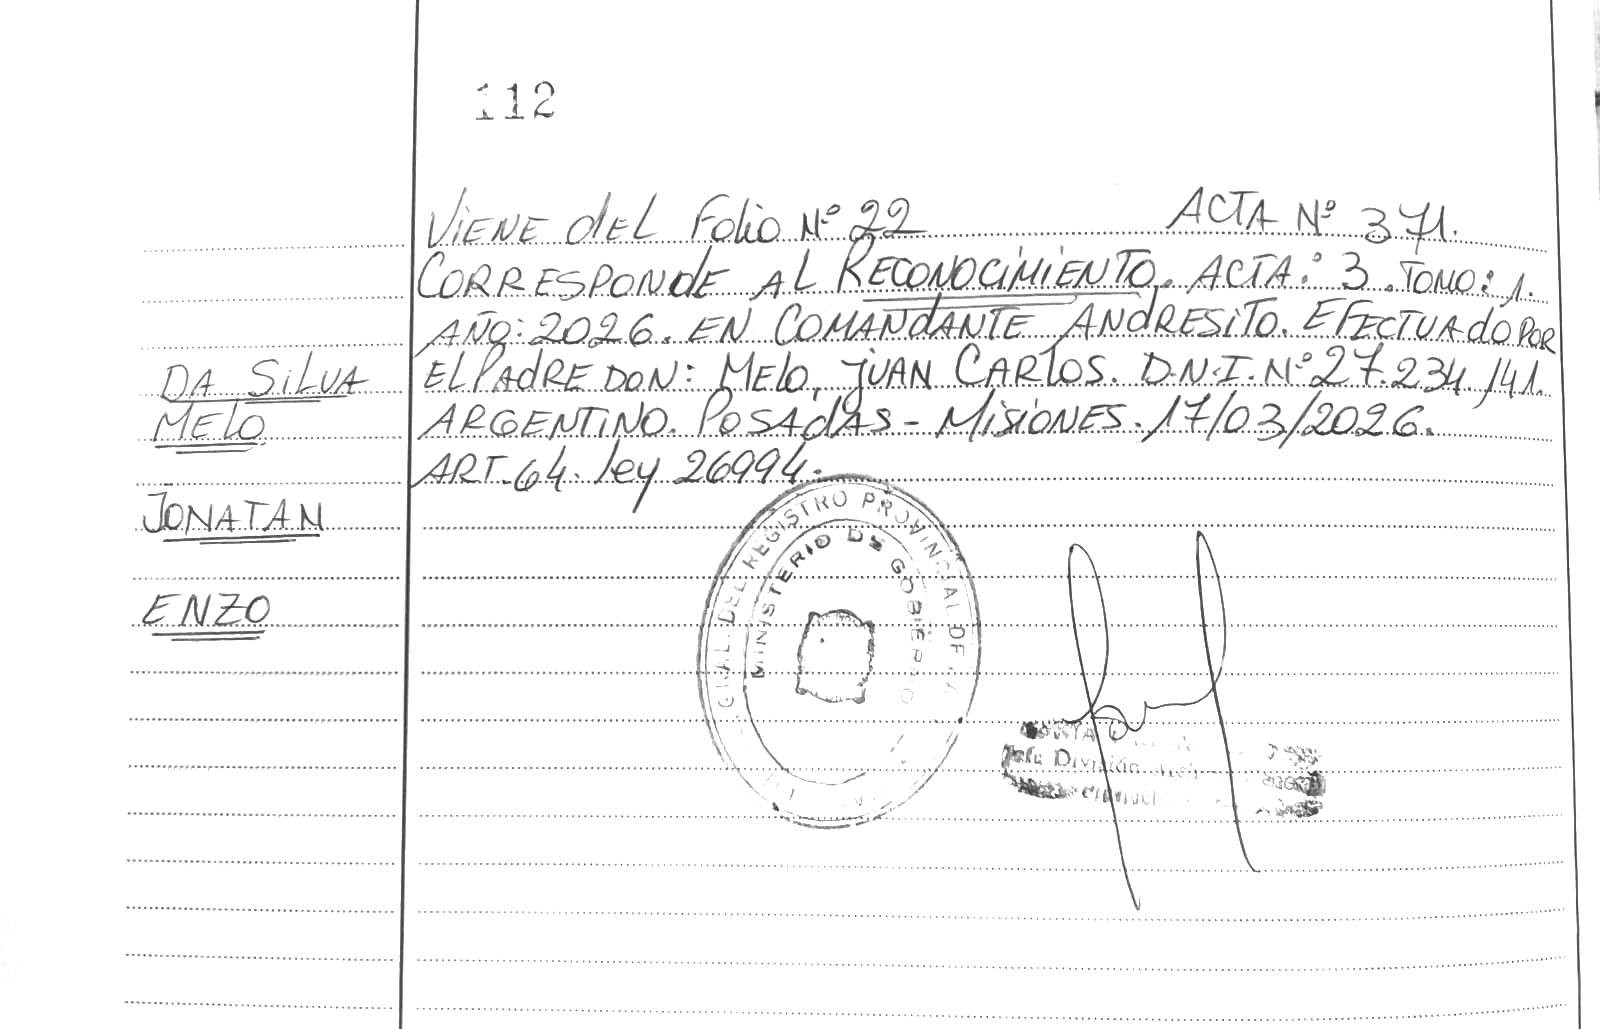 112
VIENE DEL FOLIO Nº 22 ACTA Nº 371.
CORRESPONDE AL RECONOCIMIENTO. ACTA: 3. TOMO: 1.
AÑO: 2026. EN COMANDANTE ANDRESITO. EFECTUADO POR
EL PADRE DON: MELO, JUAN CARLOS. D.N.I. Nº 27.234.141.
ARGENTINO. POSADAS - MISIONES. 17/03/2026.
ART. 64. ley 26994.
DA SILVA
MELO
JONATAN
ENZO
DEL REGISTRO PROVINCIAL DE
MINISTERIO DE GOBIERNO
Jefe División